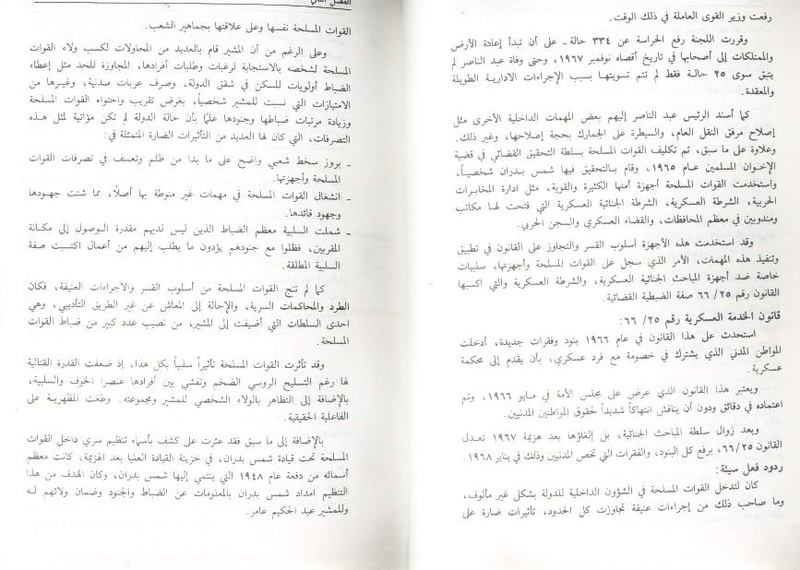 رفعت وزير القوى العاملة في ذلك الوقت.
وقررت اللجنة رفع الحراسة عن ٣٣٤ حالة - على أن تبدأ إعادة الأرض
والممتلكات إلى أصحابها في تاريخ أقصاه نوفمبر ١٩٦٧، وحتى وفاة عبد الناصر لم
يتبق سوى ٢٥ حالة فقط لم تتم تسويتها بسبب الإجراءات الادارية الطويلة
والمعقدة.
كما أسند الرئيس عبد الناصر إليهم بعض المهمات الداخلية الأخرى مثل
إصلاح مرفق النقل العام، والسيطرة على الجمارك بحجة إصلاحها، وغير ذلك.
وعلاوة على ما سبق، تم تكليف القوات المسلحة بسلطة التحقيق القضائي في قضية
الإخوان المسلمين عام ١٩٦٥، وقام بالتحقيق فيها شمس بدران شخصياً،
واستخدمت القوات المسلحة أجهزة أمنها الكثيرة والقوية، مثل ادارة المخابرات
الحربية، الشرطة العسكرية، الشرطة الجنائية العسكرية التي فتحت لها مكاتب
ومندوبين في معظم المحافظات، والقضاء العسكري والسجن الحربي.
وقد استخدمت هذه الأجهزة أسلوب القسر والتجاوز على القانون في تطبيق
وتنفيذ هذه المهمات، الأمر الذي سجل على القوات المسلحة وأجهزتها، سلبيات
خاصة ضد أجهزة المباحث الجنائية العسكرية، والشرطة العسكرية والتي اكسبها
القانون رقم ٦٦/٢٥ صفة الضبطية القضائية.
قانون الخدمة العسكرية رقم ٦٦/٢٥:
استحدث على هذا القانون في عام ١٩٦٦ بنود وفقرات جديدة، أدخلت
المواطن المدني الذي يشترك في خصومة مع فرد عسكري، بأن يقدم إلى محكمة
عسكرية.
ويعتبر هذا القانون الذي عرض على مجلس الأمة في مايو ١٩٦٦، وتم
اعتماده في دقائق ودون أن يناقش انتهاكاً شديداً لحقوق المواطنين المدنيين.
وبعد زوال سلطة المباحث الجنائية، بل إلغاؤها بعد هزيمة ١٩٦٧ تعدل
القانون ٦٦/٢٥، برفع كل البنود، والفقرات التي تخص المدنيين وذلك في يناير ١٩٦٨.
ردود فعل سيئة:
كان لتدخل القوات المسلحة في الشؤون الداخلية للدولة بشكل غير مألوف،
وما صاحب ذلك من إجراءات عنيفة تجاوزت كل الحدود، تأثيرات ضارة على
الفصل الثاني
القوات المسلحة نفسها وعلى علاقتها بجماهير الشعب.
وعلى الرغم من أن المشير قام بالعديد من المحاولات لكسب ولاء القوات
المسلحة لشخصه بالاستجابة لرغبات وطلبات أفرادها، المجاوزة للحد مثل إعطاء
الضباط أولويات للسكن في شقق الدولة، وصرف عربات مدنية، وغيرها من
الامتيازات التي نسبت للمشير شخصياً، بغرض تقريب واحتواء القوات المسلحة
وزيادة مرتبات ضباطها وجنودها علماً بأن حالة الدولة لم تكن مؤاتية لمثل هذه
التصرفات، التي كان لها العديد من التأثيرات الضارة المتمثلة في:
ـ بروز سخط شعبي واضح على ما بدا من ظلم وتعسف في تصرفات القوات
المسلحة وأجهزتها.
ـ انشغال القوات المسلحة في مهمات غير منوطة بها أصلاً، مما شتت جهودها
وجهود قائدها.
ـ شملت السلبية معظم الضباط الذين ليس لديهم مقدرة الوصول إلى مكانة
المقربين، فظلوا مع جنودهم يؤدون ما يطلب إليهم من أعمال اكتسبت صفة
السلبية المطلقة.
كما لم تنج القوات المسلحة من أسلوب القسر والاجراءات العنيفة، فكان
الطرد والمحاكمات السرية، والإحالة إلى المعاش عن غير الطريق التأديبي، وهي
احدى السلطات التي أضيفت إلى المشير، من نصيب عدد كبير من ضباط القوات
المسلحة.
وقد تأثرت القوات المسلحة تأثيراً سلبياً بكل هذا، إذ ضعفت القدرة القتالية
لها رغم التسليح الروسي الضخم وتفشي بين أفرادها عنصرا الخوف والسلبية،
بالإضافة إلى التظاهر بالولاء الشخصي للمشير ومجموعته. وطغت المظهرية على
الفاعلية الحقيقية.
بالإضافة إلى ما سبق فقد عثرت على كشف بأسماء تنظيم سري داخل القوات
المسلحة تحت قيادة شمس بدران، في خزينة القيادة العليا بعد الهزيمة، كانت معظم
أسمائه من دفعة عام ١٩٤٨ التي ينتمي إليها شمس بدران، وكان الهدف من هذا
التنظيم امداد شمس بدران بالمعلومات عن الضباط والجنود وضمان ولائهم له
وللمشير عبد الحكيم عامر.